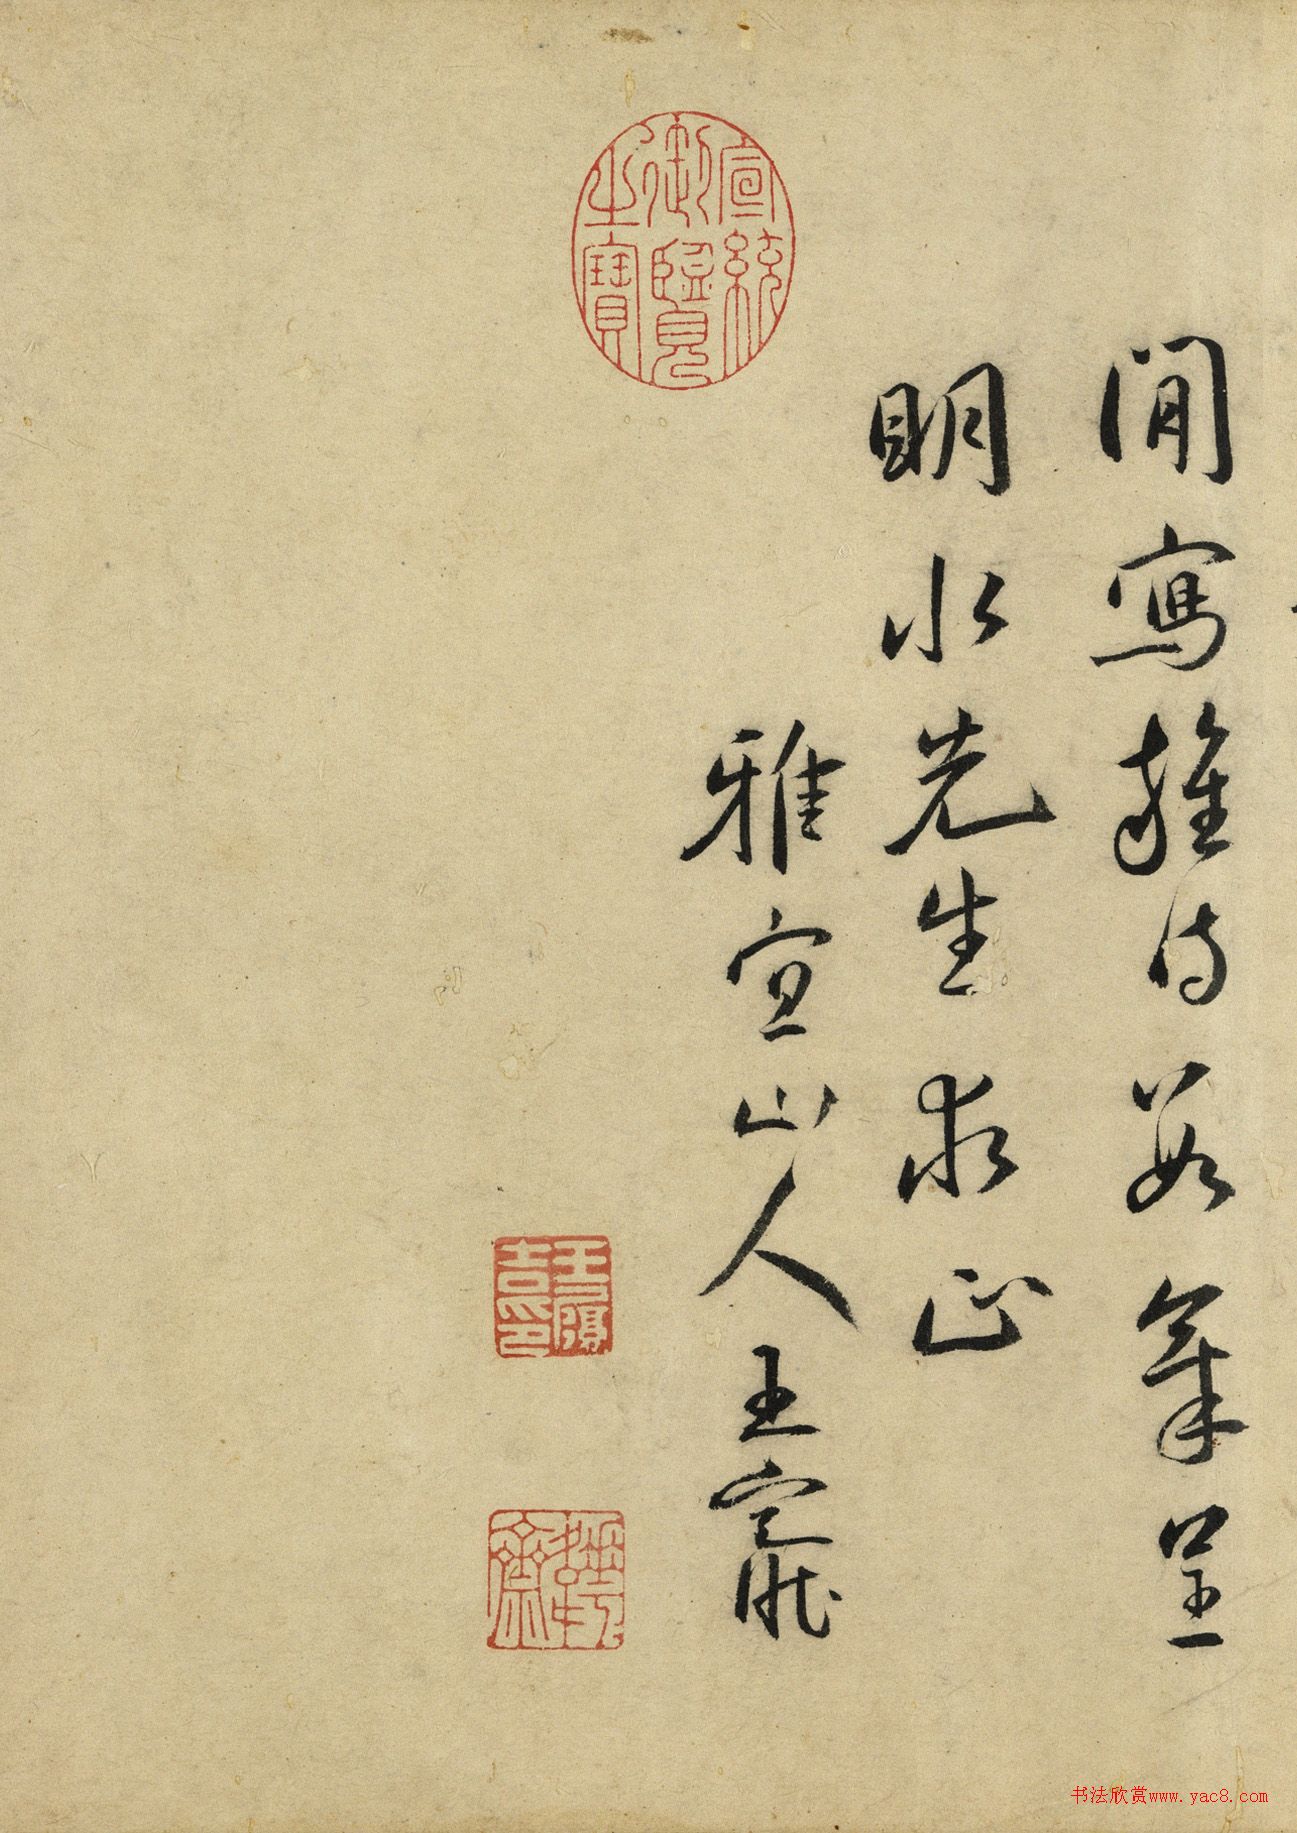 閒寫雜詩數章呈
明水先生求正
雅宜山人王寵
宣統御覽之寶
王履吉印
书法欣赏www.yac8.com